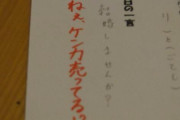 り（とっても）
日の一言
結婚しませんか？
ねぇ、ケンカ売ってる!?